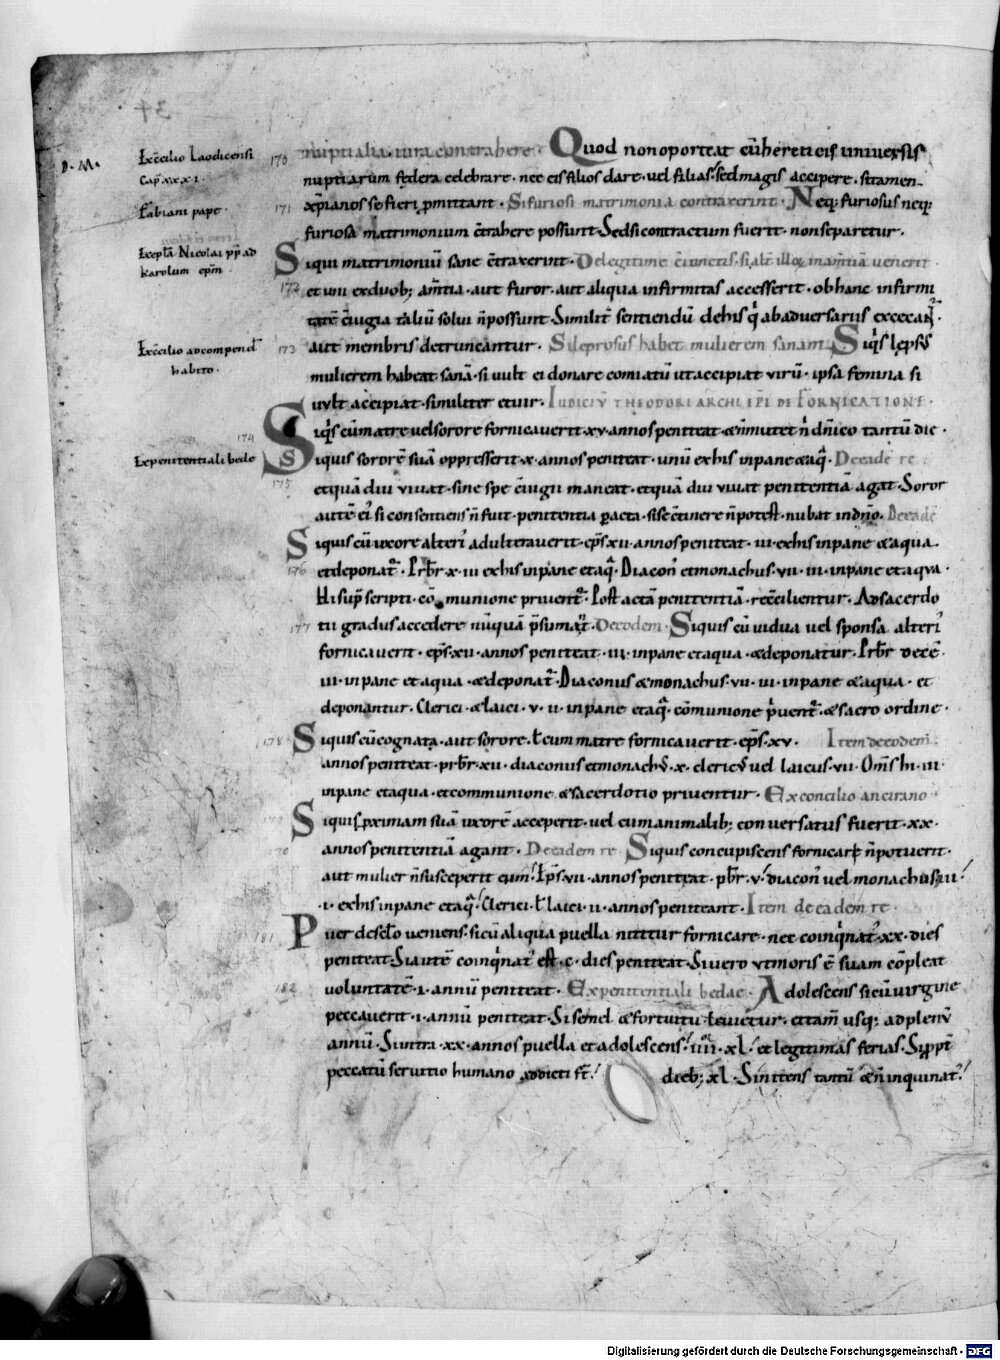 34
D. M.
Ex c̄cilio Laodicensi
Cap. xxxi.
Fabiani pape.
Ex epl̄a Nicolai pp̄ ad
karolum ep̄m.
Ex c̄cilio ad compend̄
habito.
Ex penitentiali bede
170 nuptialia iura contrahere. Quod non oporteat cū hereticis universis
nuptiarum federa celebrare. nec eis filios dare. vel filias. sed magis accipere. si tamen
171 xp̄ianos se fieri ꝓmittant. Si furiosi matrimonia contraxerint. Neq; furiosus neq;
furiosa matrimonium c̄trahere possunt. Sed si contractum fuerit. non separetur.
Siqui matrimoniū sane c̄traxerint. De legitime c̄iunctis. si alt̄ illoꝝ invenerit.
172 et uni ex duob; am̄tia. aut furor. aut aliqua infirmitas accesserit. ob hanc infirmi
tatē c̄iugia taliū solui n̄ possunt. Similit̄ sentiendū de his q̄ ab adversariis excecant̄.
173 aut membris detruncantur. Si leprosus habet mulierem sanam. Siq̄s lep̄sus
mulierem habeat sanā. si uult ei donare comiatū ut accipiat virū. ipsa femina si
uult accipiat. similiter et uir. IUDICIŪ THEODORI ARCHIEP̄I DE FORNICATIONE.
174 Siq̄s cū matre vel sorore fornicaverit. xv. annos peniteat. & n̄ mutet n̄ dn̄ico tantū die.
Siquis sororē suā oppresserit. x. annos peniteat. unū ex his in pane & aq̄. De eadē re
175 et quā diu vivat. sine spe c̄iugii maneat. et quā diu vivat penitentiā agat. Soror
autē ei' si consentiens n̄ fuit. penitentia ꝑacta. si se c̄tinere n̄ potest. nubat in dn̄o. De eadē
Siquis cū uxore alteri' adulteraverit. ep̄s xii. annos peniteat. iii. ex his in pane & aqua.
176 et deponat̄. Pr̄br x. iii ex his in pane et aq̄. Diacon' et monachus. vii. iii. in pane et aqua.
Hi sup̄scripti. cōmunione privent̄. Post actā penitentiā. rec̄cilientur. Ad sacerdo
177 tii gradus accedere nūquā p̄sumat̄. De eodem. Siquis cū vidua vel sponsa alteri'
fornicaverit. ep̄s xii. annos peniteat. iii. in pane et aqua. & deponatur. Pr̄br decē.
iii. in pane et aqua. & deponat̄. Diaconus & monachus. vii. iii. in pane & aqua. et
deponantur. Clerici. & laici. v. ii. in pane et aq̄. cōmunione p̄uent̄. & sacro ordine.
178 Siquis cū cognata. aut sorore. ł cum matre fornicaverit. ep̄s. xv. Item de eodem.
annos peniteat. pr̄br. xii. diaconus et monach'. x. cleric' vel laicus. vii. Om̄s hi. iii.
in pane et aqua. et communione & sacerdotio priventur. Ex concilio ancirano.
Siquis ꝓximam suā uxorē acceperit. vel cum animalib; conversatus fuerit. xx.
annos penitentiā agant. De eadem re. Siquis concupiscens fornicari n̄ potuerit.
aut mulier n̄ susceperit eum. Ep̄s. vii. annos peniteat. pb̄r. v. diacon' vel monachus. iii.
.i. ex his in pane et aq̄. Clerici. ł laici. ii. annos peniteant. Item de eadem re.
181 Puer de sc̄lo veniens. si cū aliqua puella nititur fornicare. nec coinq̄nat'. xx. dies
peniteat. Si autē coinq̄nat' est. c. dies peniteat. Si vero ut moris ē suam cōpleat
182 voluntatē. i. annū peniteat. Ex penitentiali bedae. Adolescens si cū virgine
peccaverit. i. annū peniteat. Si semel & fortuitu. etiam usq; ad plenū
annū. Si intra. xx. annos puella et adolescens. iii. xl. et legitimas ferias. Si ꝓpt̄
peccatū servitio humano addicti st̄. dieb; xl. Si nitens tantū & n̄ inquinat'.
Digitalisierung gefördert durch die Deutsche Forschungsgemeinschaft - DFG